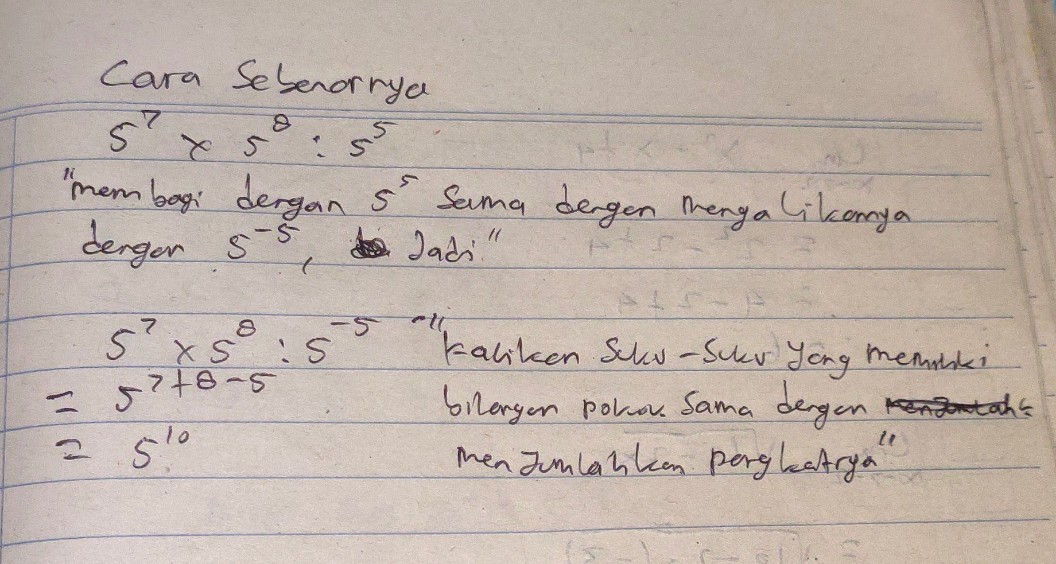 Cara Sebenarnya
5⁷ x 5⁸ : 5⁵
"membagi dengan 5⁵ Sama dengan mengalikannya
dengan 5⁻⁵, Jadi"
5⁷ x 5⁸ : 5⁻⁵ "kalikan Suku-Suku yang memiliki
= 5⁷⁺⁸⁻⁵ bilangan pokok Sama dengan
= 5¹⁰ menjumlahkan pangkatnya"